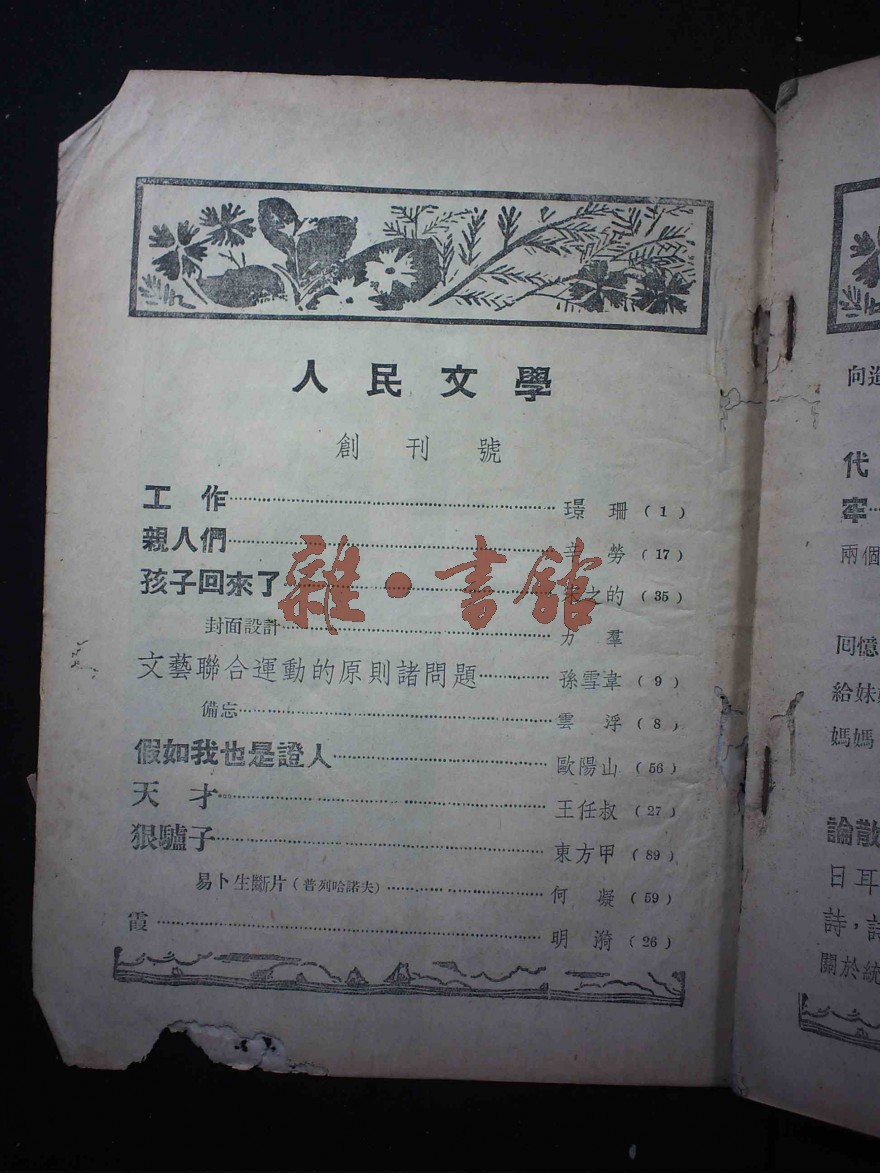 人民文學
創刊號
工作 璟珊 (1)
親人們 辛勞 (17)
孩子回來了 宋之的 (35)
封面設計 力羣
文藝聯合運動的原則諸問題 孫雪韋 (9)
備忘 雲浮 (8)
假如我也是證人 歐陽山 (56)
天才 王任叔 (27)
狠驢子 東方甲 (89)
易卜生斷片(普列哈諾夫) 何凝 (59)
霞 明漪 (26)
雜·書館
向
代
兩個
回憶
給妹
媽媽
論散
日耳
詩,
關於統